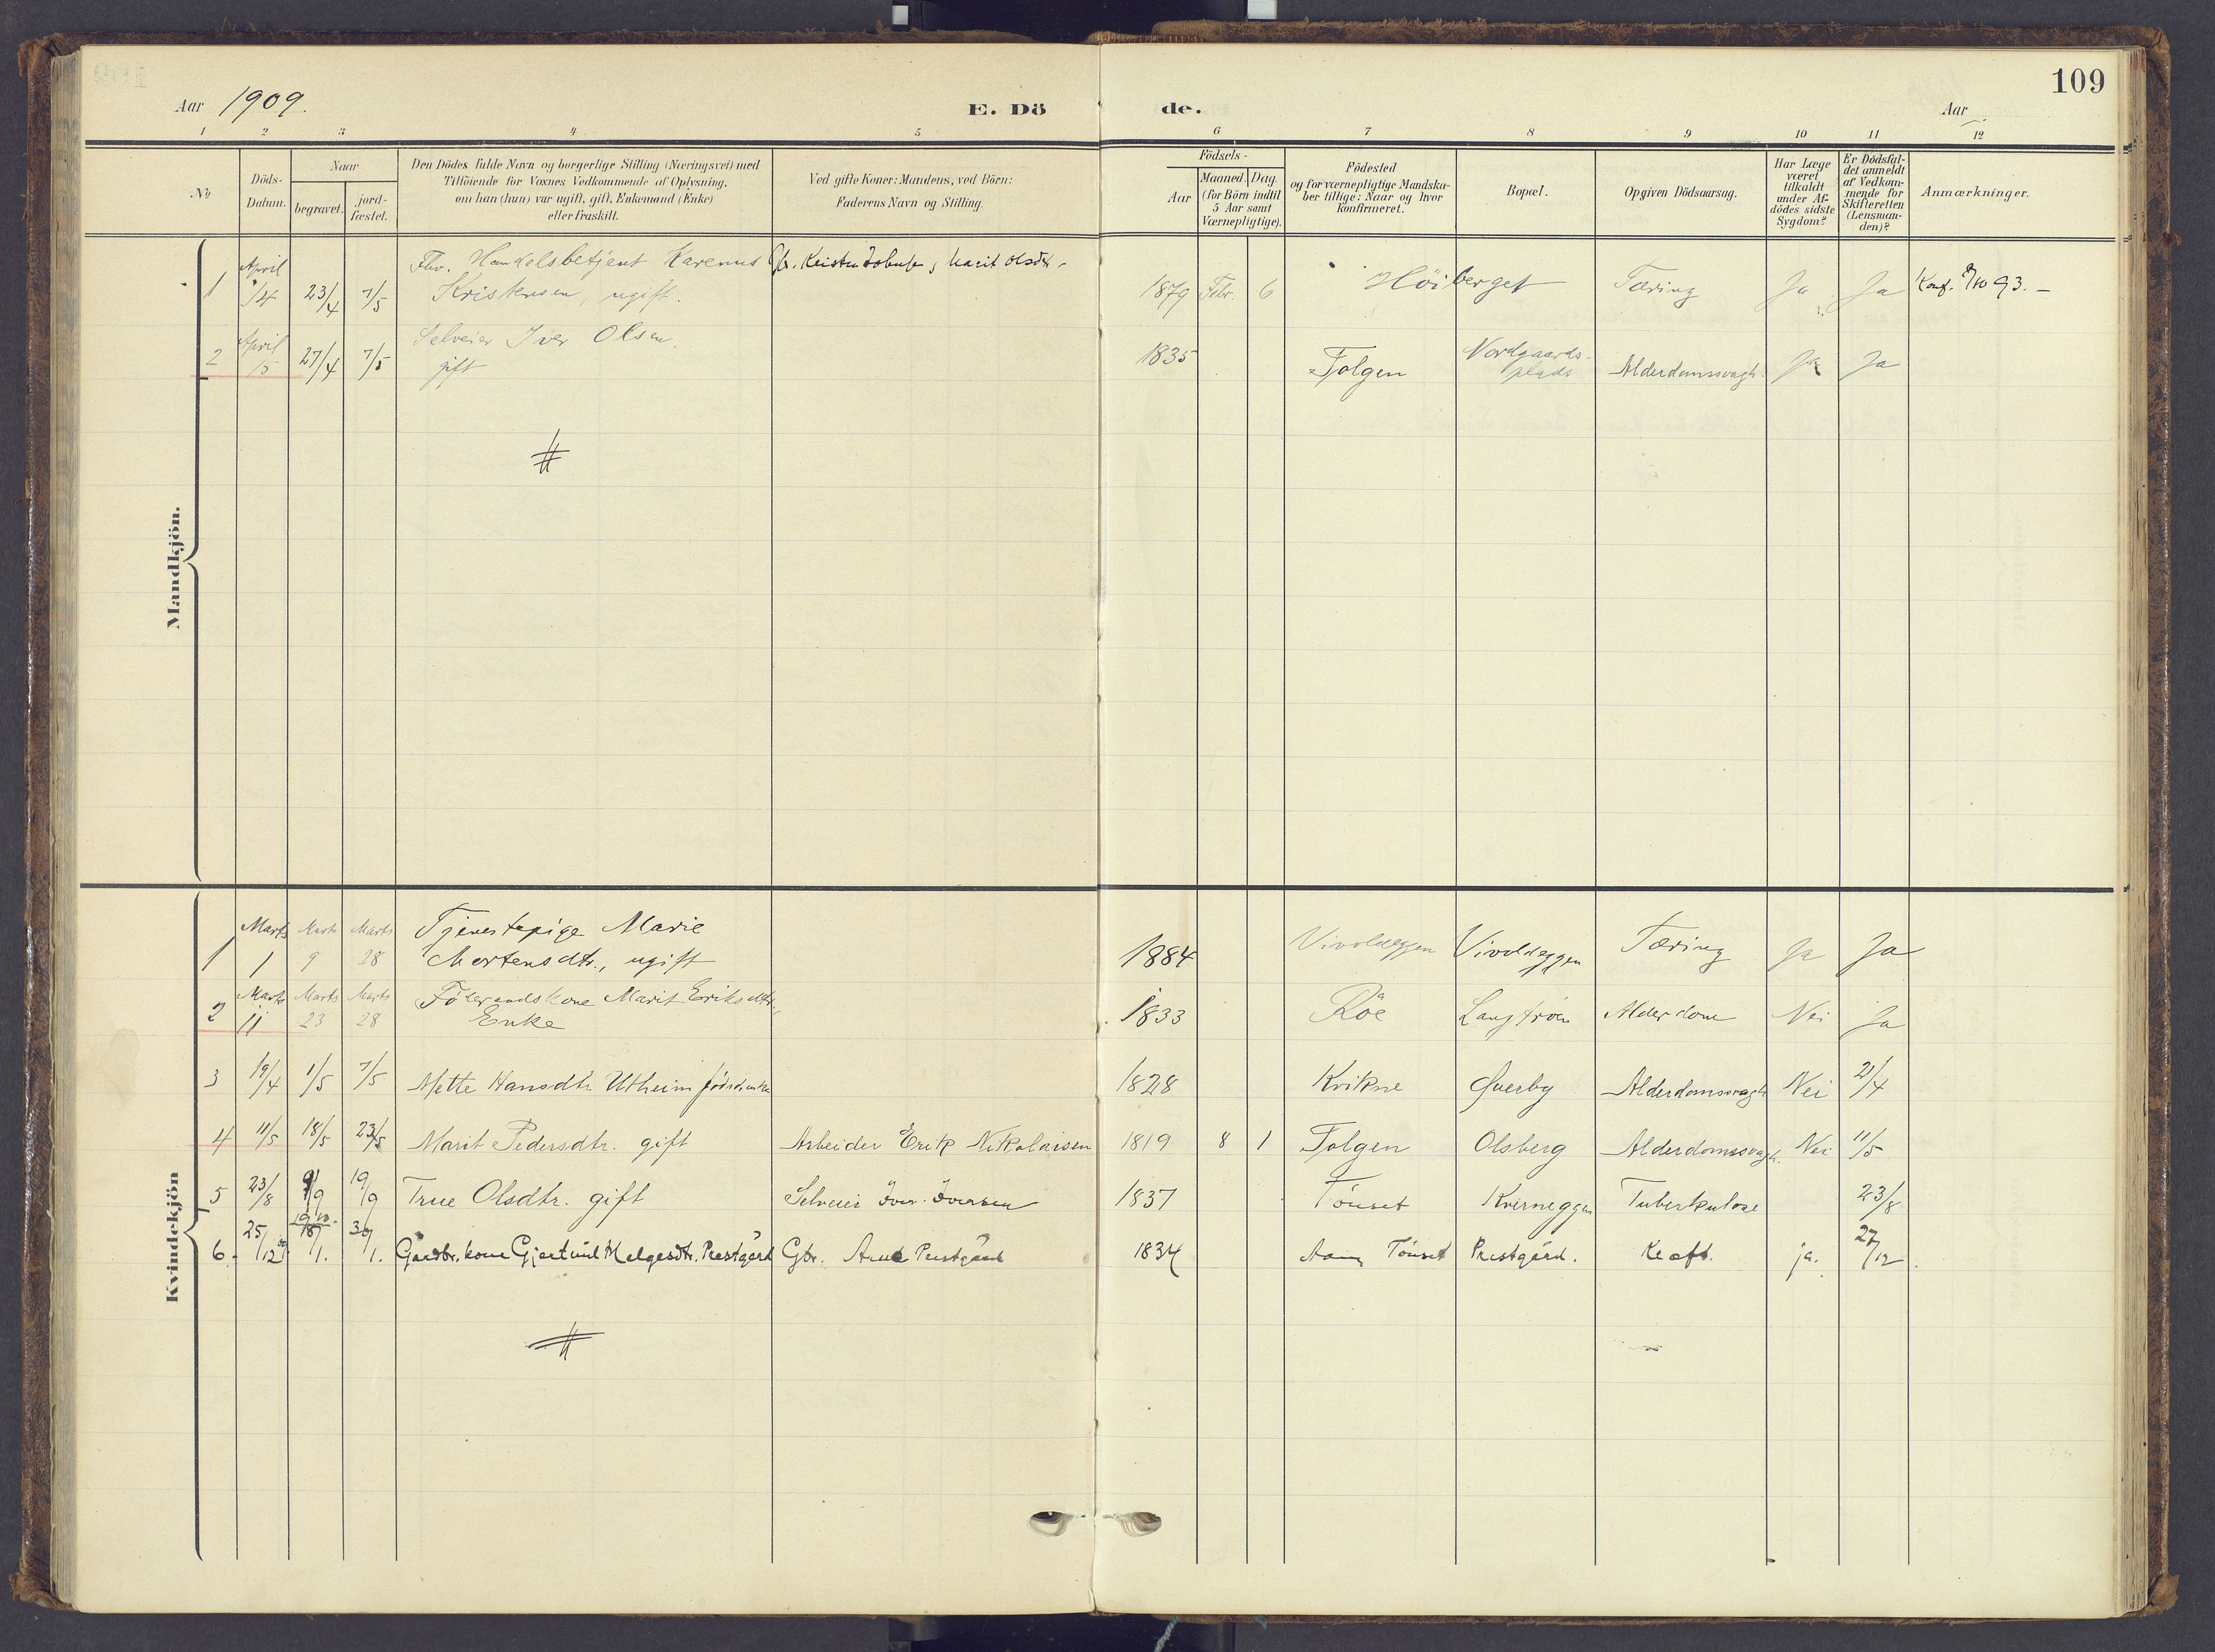 109
Aar 1909. E. Dö de. Aar
1 2 3 4 5 6 7 8 9 10 11 12
No
Döds-
Datum.
Naar
begravet.
jord-
fæstet.
Den Dödes fulde Navn og borgerlige Stilling (Næringsvei) med
Tilföiende for Voxnes Vedkommende af Oplysning,
om han (hun) var ugift, gift, Enkemand (Enke)
eller fraskilt.
Ved gifte Koner: Mandens, ved Börn:
Faderens Navn og Stilling.
Födsels-
Aar
Maaned. Dag.
(for Börn indtil
5 Aar samt
Værnepligtige).
Födested
og for værnepligtige Mandska-
ber tillige: Naar og hvor
konfirmeret.
Bopæl.
Opgiven Dödsaarsag.
Har Læge
været
tilkaldt
under Af-
dödes sidste
Sygdom?
Er Dödsfal-
det anmeldt
af Vedkom-
mende for
Skifteretten
(Lensman-
den)?
Anmærkninger.
Mandkjön.
April Fhv. Handelsbetjent Karenus
1 14 23/4 7/5 Kristensen, ugift. 1879 Febr. 6 Höiberget Tæring Ja Ja Konf. 93. –
April Selveier Iver Olsen,
2 15 27/4 7/5 gift 1835 Tolgen Nordgaards-
plads Alderdomssvagh. Ja Ja
Kvindekjön
Marts Marts Marts Tjenestepige Marie
1 1 9 28 Mortensdtr., ugift 1884 Vivoldeggen Vivoldeggen Tæring Ja Ja
Marts Marts Marts Föderaadskone Marit Eriksdtr.,
2 11 23 28 Enke 1833 Röe Langtröen Alderdom Nei Ja
3 19/4 1/5 7/5 Mette Hansdtr Utheim 1828 Kvikne Øverby Alderdomssvagh Nei 21/4
4 11/5 18/5 23/5 Marit Pedersdtr. gift Arbeider Erik Nikolaisen 1819 8 1 Tolgen Olsberg Alderdomssvagh. Nei 11/5
5 23/8 9/9 19/9 True Olsdtr. gift Selveier Iver Iversen 1837 Tönset Kverneggen Tuberkulose 23/8
6. 25/12 1. 30/1. Gårdbr. kone Gjertrud Helgesdtr. Prestgård Gbr. Arne Prestgård 1834 Tönset Prestgård. Kræft. ja. 27/12